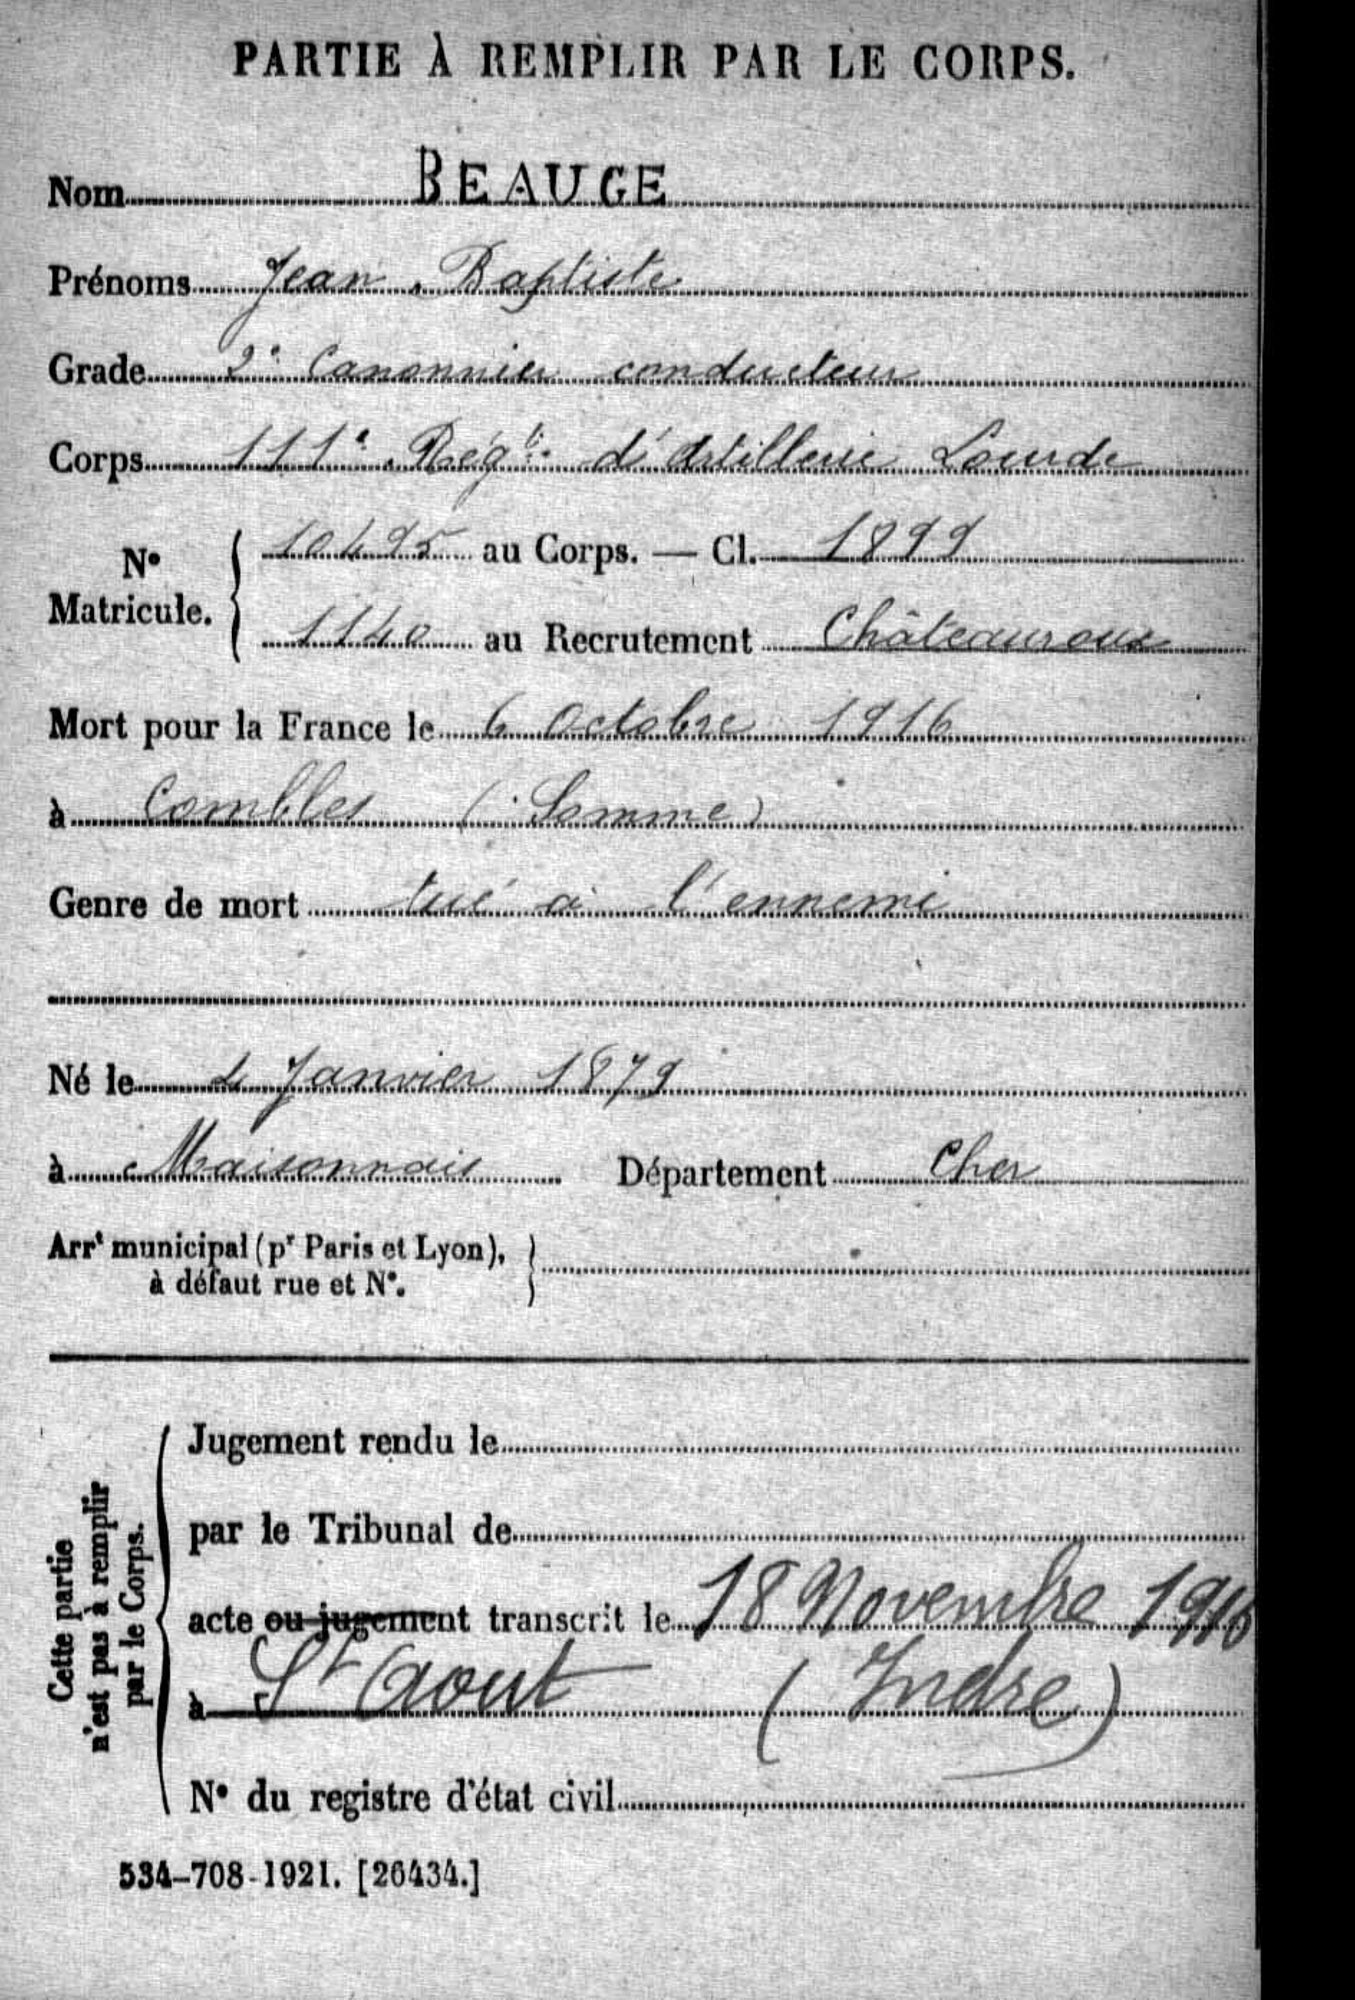 PARTIE À REMPLIR PAR LE CORPS.
Nom BEAUGE
Prénoms Jean. Baptiste
Grade 2e Canonnier conducteur
Corps 111e Régt d'Artillerie Lourde
No Matricule. { 10495 au Corps. — Cl. 1899
1140 au Recrutement Châteauroux
Mort pour la France le 6 Octobre 1916
à Combles (Somme)
Genre de mort tué à l'ennemi
Né le 4 Janvier 1879
à Maisonnais Département Cher
Arrt municipal (pr Paris et Lyon), }
à défaut rue et No.
Cette partie
n'est pas à remplir
par le Corps.
Jugement rendu le
par le Tribunal de
acte ou jugement transcrit le 18 Novembre 1916
à St Aout (Indre)
No du registre d'état civil
534-708-1921. [26434.]